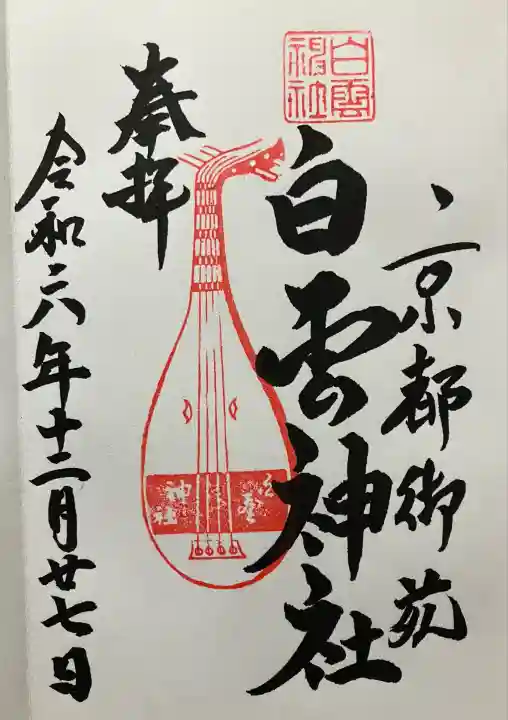 京都御苑
白雲
神社
白雲神社
奉拝
白雲
神社
令和六年十二月廿七日